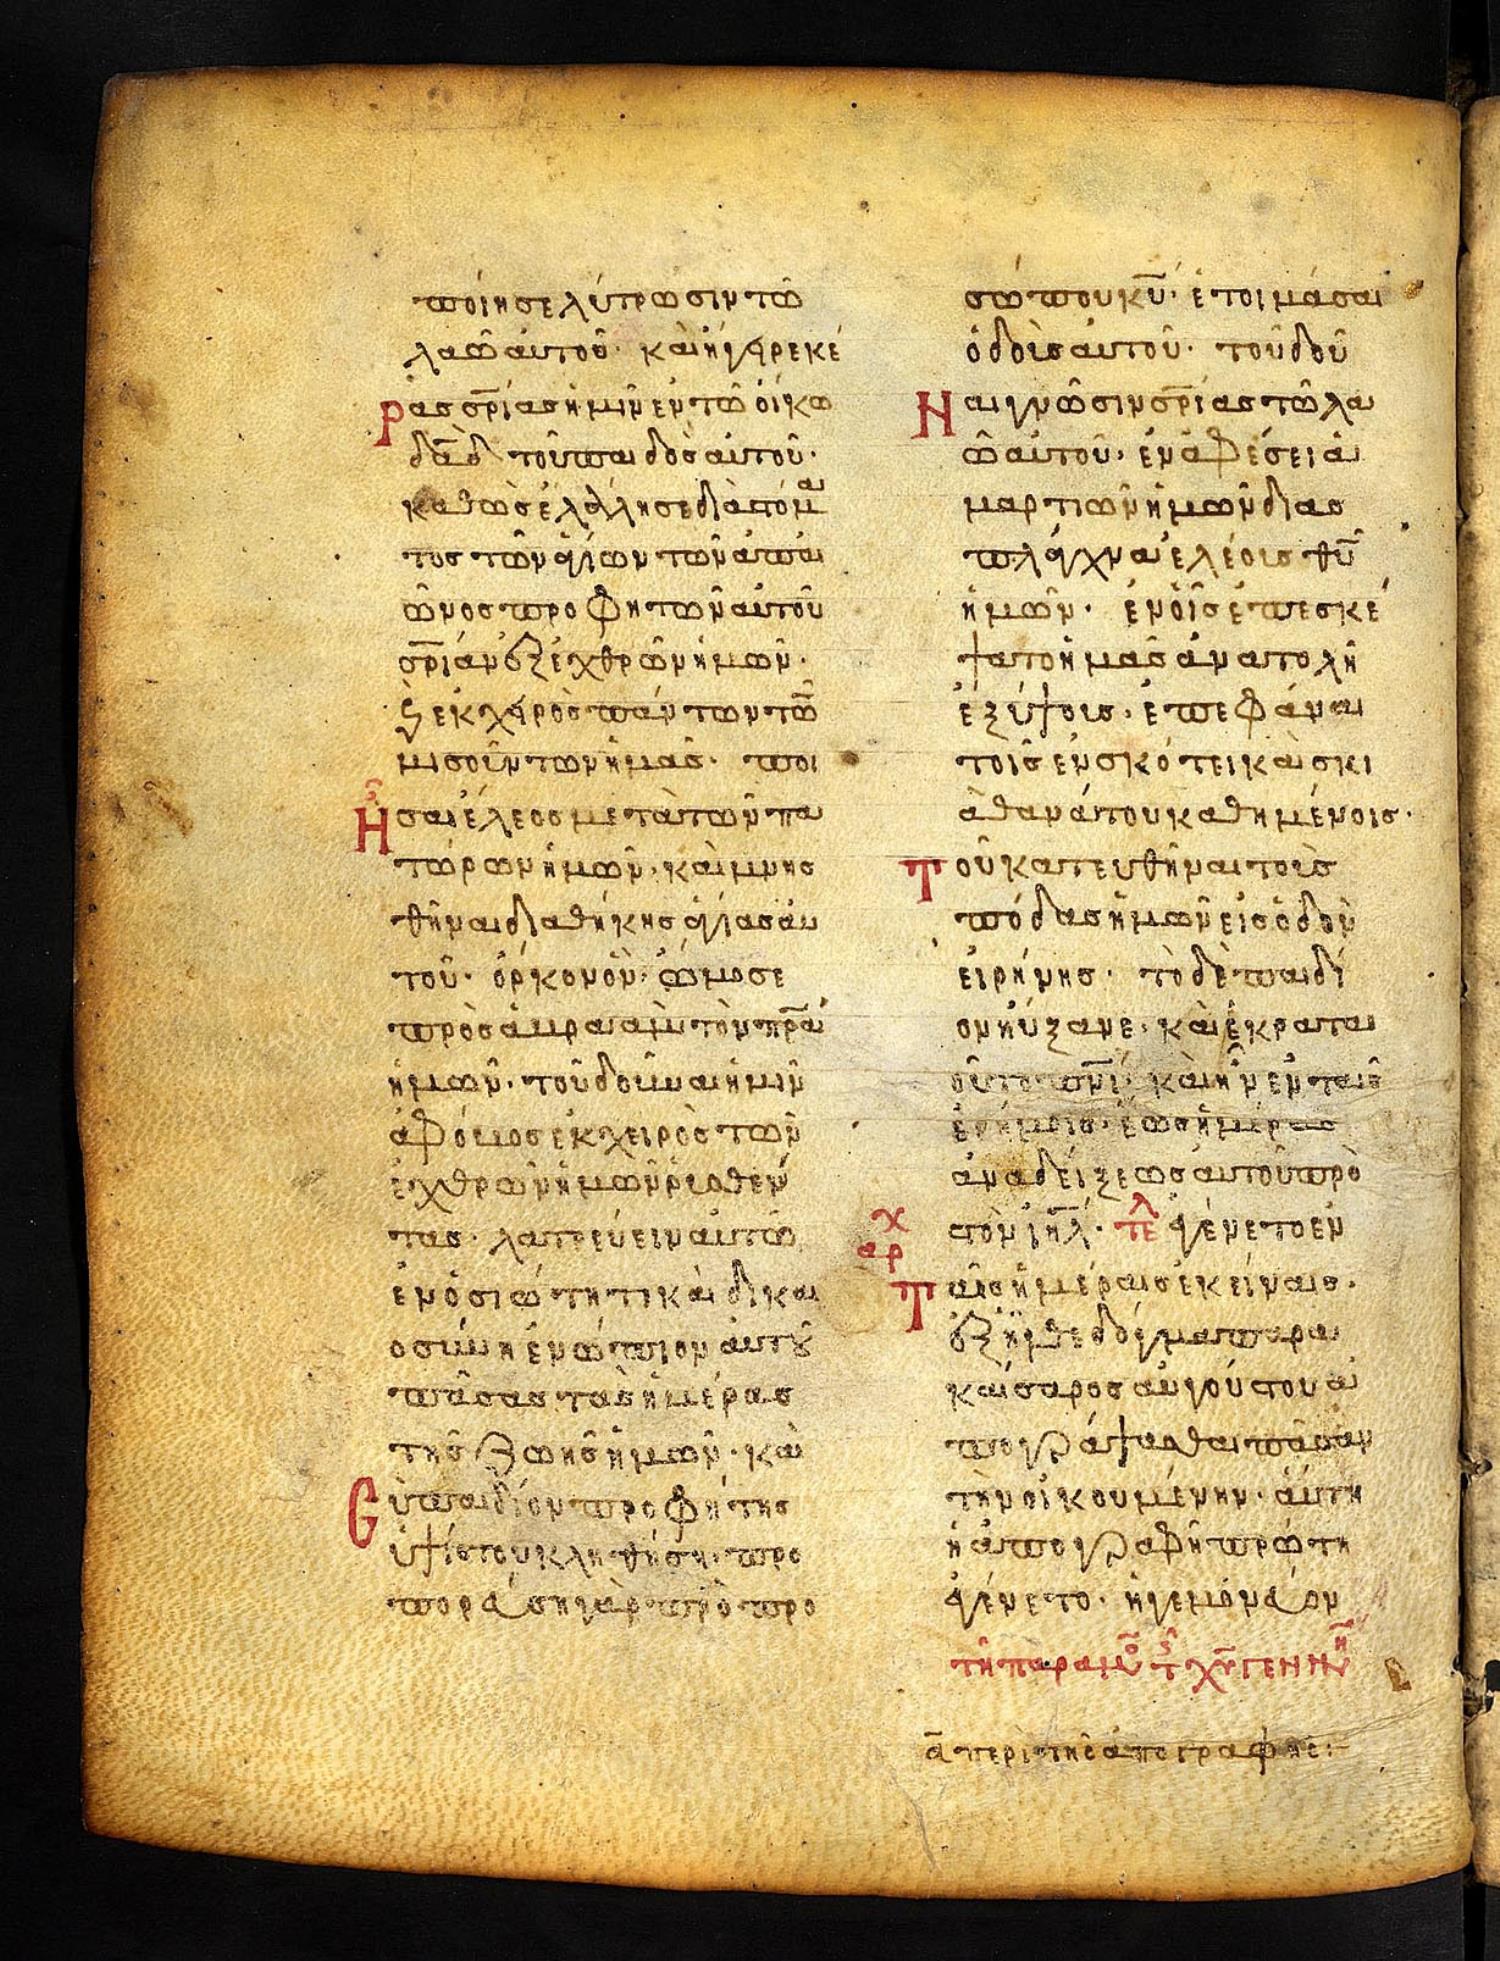 ποίησε λύτρωσιν τῶ
λαῶ αὐτοῦ· καὶ ἤγειρε κέ
ρας σ̅ρίας ἡμῖν ἐν τῶ οἴκω
δα̅δ τοῦ παιδὸς αὐτοῦ·
καθὼς ἐλάλησε διὰ στόμα
τος τῶν ἁγίων τῶν ἀπ' αἰ
ῶνος προφητῶν αὐτοῦ
σ̅ρίαν ἐξ ἐχθρῶν ἡμῶν·
ϗ ἐκ χειρὸς πάντων τῶ̅
μισούντων ἡμᾶς· ποι
Ησαι ἔλεος μετὰ τῶν πα
τέρων ἡμῶν· καὶ μνησ
θῆναι διαθήκης ἁγίας αὐ
τοῦ· ὅρκον ὃν ὤμοσε
πρὸς ἀβραὰμ τὸν π̅ρα
ἡμῶν· τοῦ δοῦναι ἡμῖν
ἀφόβως ἐκ χειρὸς τῶν
ἐχθρῶν ἡμῶν ῥυσθέν
τας· λατρεύειν αὐτῶ
ἐν ὁσιώτητι καὶ δικαι
οσύνη ἐνώπιον αὐτȣ
πάσας τὰς ἡμέρας
τῆς ζωῆς ἡμῶν· καὶ
Сὺ παιδίον προφήτης
ὑψίστου κληθήση· προ
πορεύση γὰρ πρὸ προ
σώπου κ̅υ· ἑτοιμάσαι
ὁδοὺς αὐτοῦ· τοῦ δοῦ
Ναι γνῶσιν σ̅ρίας τῶ λα
ῶ αὐτοῦ· ἐν ἀφέσει ἁ
μαρτιῶν ἡμῶν διὰ σ
πλάγχνα ἐλέους θ̅υ
ἡμῶν· ἐν οἷς ἐπεσκέ
ψατο ἡμᾶς ἀνατολὴ
ἐξ ὕψους· ἐπιφάναι
τοῖς ἐν σκότει καὶ σκι
ᾶ θανάτου καθημένοις·
Τοῦ κατευθῆναι τοὺς
πόδας ἡμῶν εἰς ὁδὸν
εἰρήνης· τὸ δὲ παιδί
ον ηὔξανε· καὶ ἐκραται
οῦτο π̅νι· καὶ ἦν ἐν ταῖς
ἐρήμοις· ἕως ἡμέρας
ἀναδείξεως αὐτοῦ πρὸ
χ
αρ
ς τὸν ἰ̅ηλ· τελ ἐγένετο ἐν
Ταῖς ἡμέραις ἐκείναις·
ἐξῆλθε δόγμα παρα
καίσαρος αὐγούστου ἀ
πογράψασθαι πᾶσαν
τὴν οἰκουμένην· αὕτη
ἡ ἀπογραφὴ πρώτη
ἐγένετο· ἡγεμόνευον
τῆ παραμο̅ τ̅ χ̅υ γεννη̅
α̅ περὶ τῆς ἀπογραφῆς: